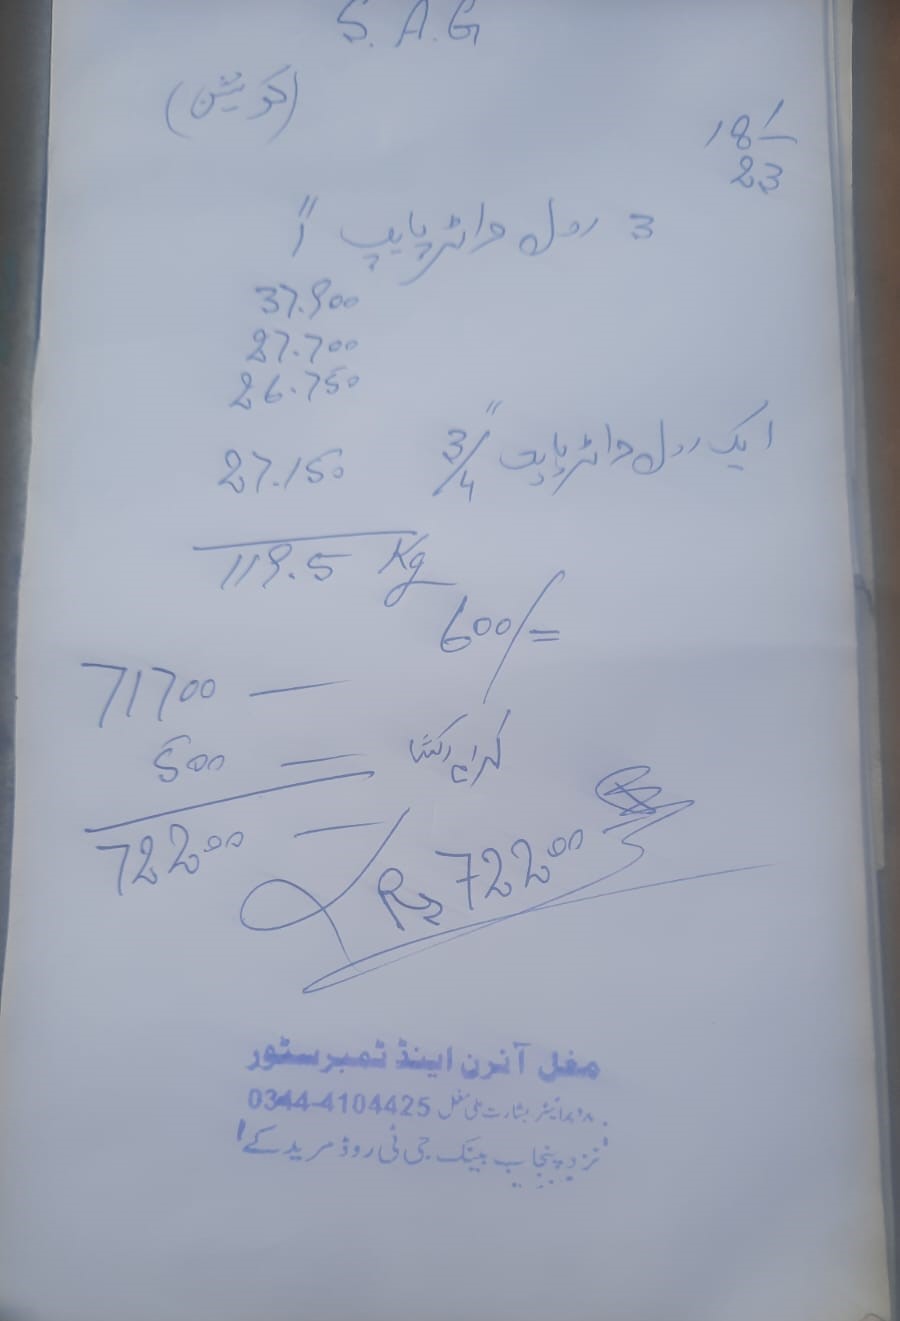 S.A.G
(کوٹیشن)
18/-
23
3 رول واٹر پایپ 1"
37.900
27.700
26.750
ایک رول واٹر پایپ 3/4" 27.150
119.5 Kg
600/=
71700 —
500 — کرایہ رکشا
72200 —
Rs 72200
مغل آئرن اینڈ ٹمبر سٹور
پروپرائیٹر بشارت علی مغل 0344-4104425
نزد پنجاب بینک جی ٹی روڈ مریدکے